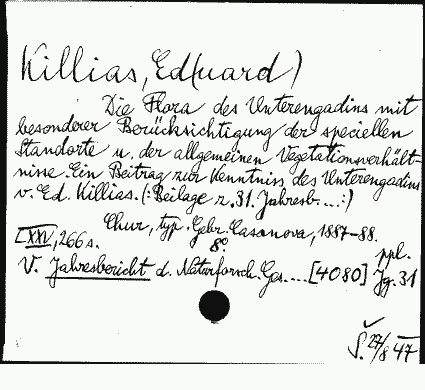 Killias, Ed(uard)
Die Flora des Unterengadins mit
besonderer Berücksichtigung der speciellen
Standorte u. der allgemeinen Vegetationsverhält-
nisse. Ein Beitrag zur Kenntniss des Unterengadins
v. Ed. Killias. (: Beilage z. 31. Jahresb....:)
Chur, typ. Gebr. Casanova, 1887-88.
[XXV], 266 s. 8° ppl.
V. Jahresbericht d. Naturforsch. Ges.... [4080] Jg. 31
S. 27/8 47